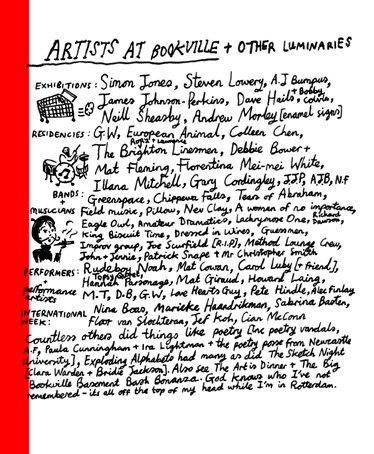 ARTISTS AT BOOKVILLE + OTHER LUMINARIES
EXHIBITIONS: Simon Jones, Steven Lowery, A.J Bumpus,
James Johnson-Perkins, Dave Hails, + Bobby
Neill Sheasby, Andrew Morley [enamel signs]
RESIDENCIES: G.W, European Animal, Colleen Chen,
The Brighton Linesmen, Debbie Bower +
Mat Fleming, Florentina Mei-mei White,
Illana Mitchell, Gary Cordingley, JJP, AJB, N.F
BANDS: Greenspace, Chippewa Falls, Tears of Abraham,
+
MUSICIANS Field music, Pillow, New Clay, A women of no importance,
Eagle Owl, Amateur Dramatics, Lachrymose One, Richard Dawson,
King Biscuit Time, Dressed in Wires, Guessmen,
Improv group, Joe Scurfield [R.I.P], Method Lounge Crew,
John + Jennie, Patrick Snape + Mr Christopher Smith
PERFORMERS: Rudeboy Noah, Mat Cowan, Carol Luby [+ friend],
+
performance artists
Hannah Parsonage, Mat Giraud, Howard Laing,
M.T, D.B, G.W, Love Hearts Guy, Pete Hindle, Alec Finlay
INTERNATIONAL WEEK: Nina Boas, Marieke Haandrikman, Sabrina Basten,
Floor van Slochteran, Jef Koh, Cian McConn
Countless others did things like poetry [Inc poetry vandals,
A.F, Paula Cunningham + Ira Lightman + the poetry posse from Newcastle
University], Exploding Alphabets had many as did The Sketch Night
[Clara Warden + Bridie Jackson]. Also see The Art is Dinner + The Big
Bookville Basement Bash Bonanza. God knows who I've not
remembered - its all off the top of my head while I'm in Rotterdam.